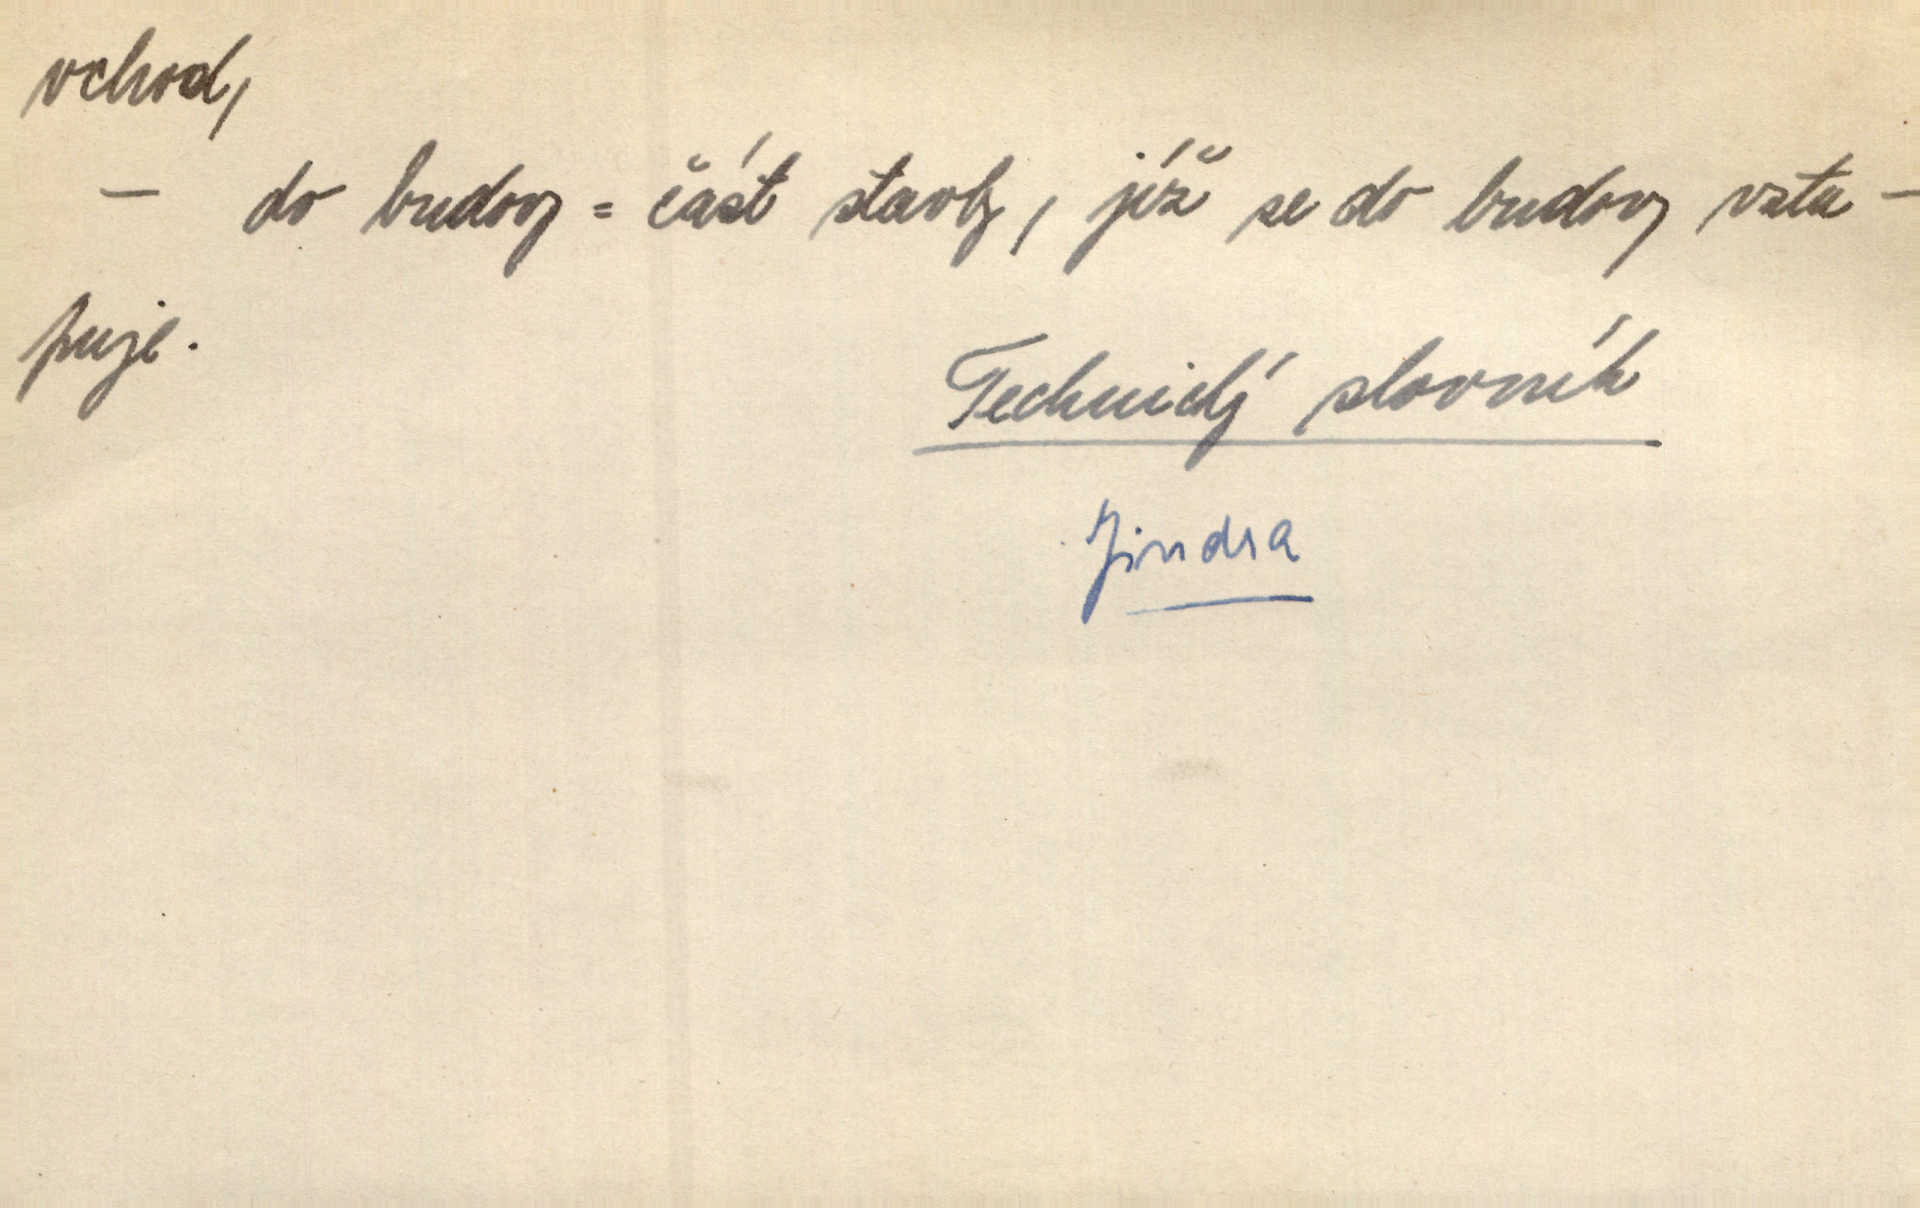 vchod,
— do budovy = část stavby, jíž se do budovy vstu-
puje.
Technický slovník
Jindra